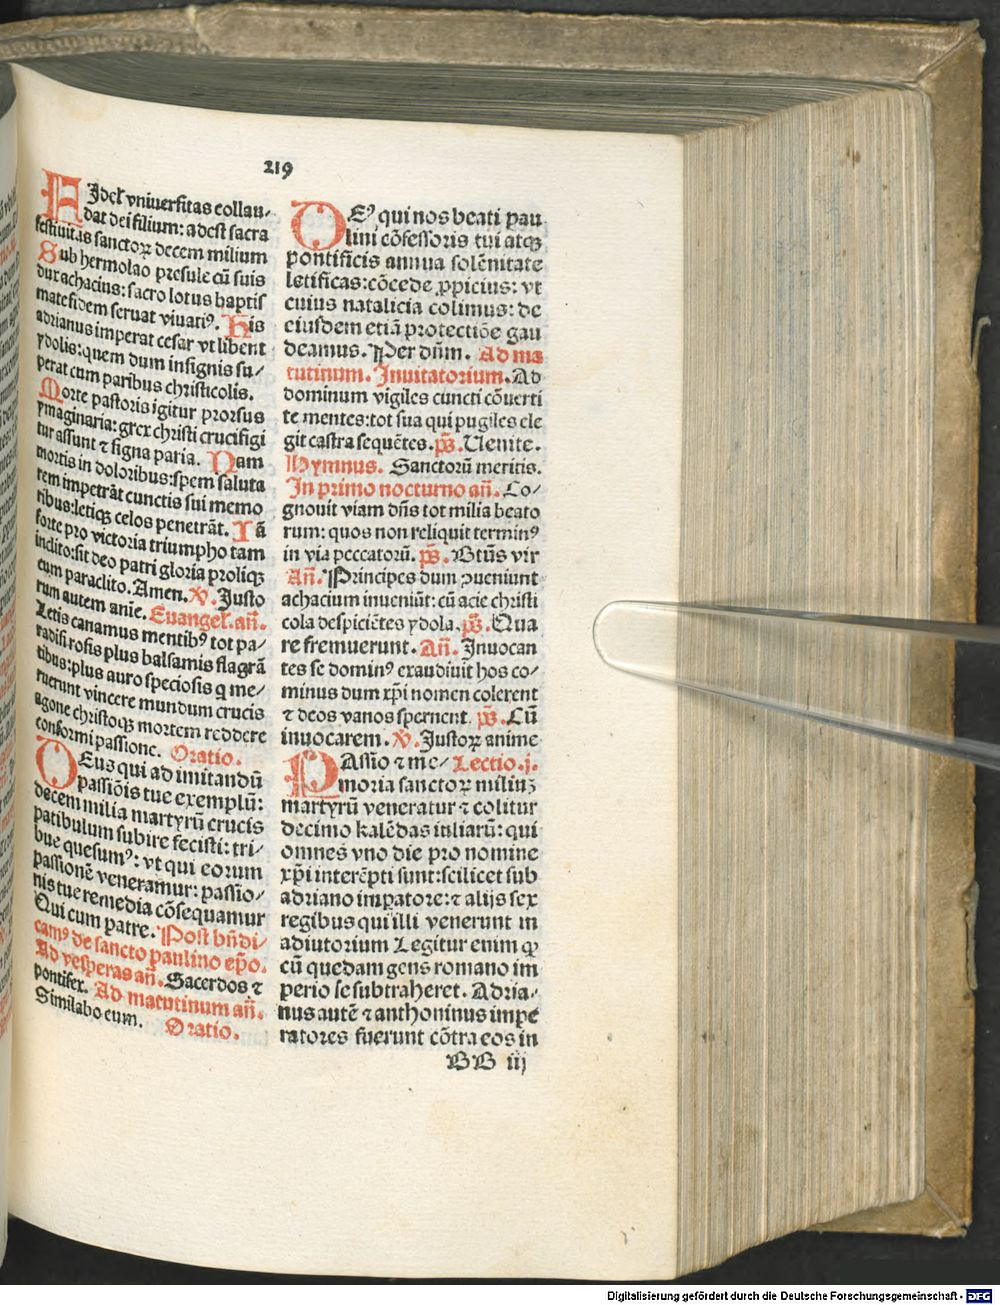 219
Fidel vniuersitas collau-
dat dei filium: adest sacra
festiuitas sanctoꝝ decem milium
Sub hermolao presule cū suis
dux achacius: sacro lotus baptis
mate fidem seruat viuatiꝰ. His
adrianus imperat cesar vt libent
ydolis: quem dum insignis su/
perat cum paribus christicolis.
Morte pastoris igitur prorsus
ymaginaria: grex christi crucifigi
tur assunt ⁊ signa paria. Nam
mortis in doloribus: spem saluta
rem impetrāt cunctis sui memo
ribus: letiqꝫ celos penetrāt. Iā
forte pro victoria triumpho tam
inclito: sit deo patri gloria proliqꝫ
cum paraclito. Amen. ℣. Justo
rum autem anie. Euangel. an̄.
Letis canamus mentibꝰ tot pa/
radisi rosis plus balsamis flagrā
tibus: plus auro speciosis q me/
ruerunt vincere mundum crucis
agone christoqꝫ mortem reddere
conformi passione. Oratio.
DEus qui ad imitandū
passiōis tue exemplū:
decem milia martyrū crucis
patibulum subire fecisti: tri/
bue quesumꝰ: vt qui eorum
passionē veneramur: passio/
nis tue remedia cōsequamur
Qui cum patre. Post bn̄di/
camꝰ de sancto paulino ep̄o.
Ad vesperas an̄. Sacerdos ⁊
pontifex. Ad matutinum an̄.
Similabo eum. Oratio.
DEꝰ qui nos beati pau
lini cōfessoris tui atqꝫ
pontificis annua solēnitate
letificas: cōcede ꝓpicius: vt
cuius natalicia colimus: de
eiusdem etiā protectiōe gau
deamus. Per dn̄m. Ad ma
tutinum. Inuitatorium. Ad
dominum vigiles cuncti cōuerti
te mentes: tot sua qui pugiles ele
git castra sequētes. ps̄. Uenite.
Hymnus. Sanctorū meritis.
In primo nocturno an̄. Co/
gnouit viam dn̄s tot milia beato
rum: quos non reliquit terminꝰ
in via peccatorū. ps̄. Btūs vir
An̄. Principes dum ꝯueniunt
achacium inueniūt: cū acie christi
cola despiciētes ydola. ps̄. Qua
re fremuerunt. An̄. Inuocan
tes se dominꝰ exaudiuit hos co/
minus dum xp̄i nomen colerent
⁊ deos vanos spernent. ps̄. Cū
inuocarem. ℣. Justoꝝ anime
PAssio ⁊ me/ Lectio .j.
moria sanctoꝝ miliuꝫ
martyrū veneratur ⁊ colitur
decimo kalēdas iuliarū: qui
omnes vno die pro nomine
xp̄i interēpti sunt: scilicet sub
adriano impatore: ⁊ alijs sex
regibus qui illi venerunt in
adiutorium Legitur enim ꝙ
cū quedam gens romano im
perio se subtraheret. Adria/
nus autē ⁊ anthoninus impe
ratores fuerunt cōtra eos in
BB iij
Digitalisierung gefördert durch die Deutsche Forschungsgemeinschaft - DFG